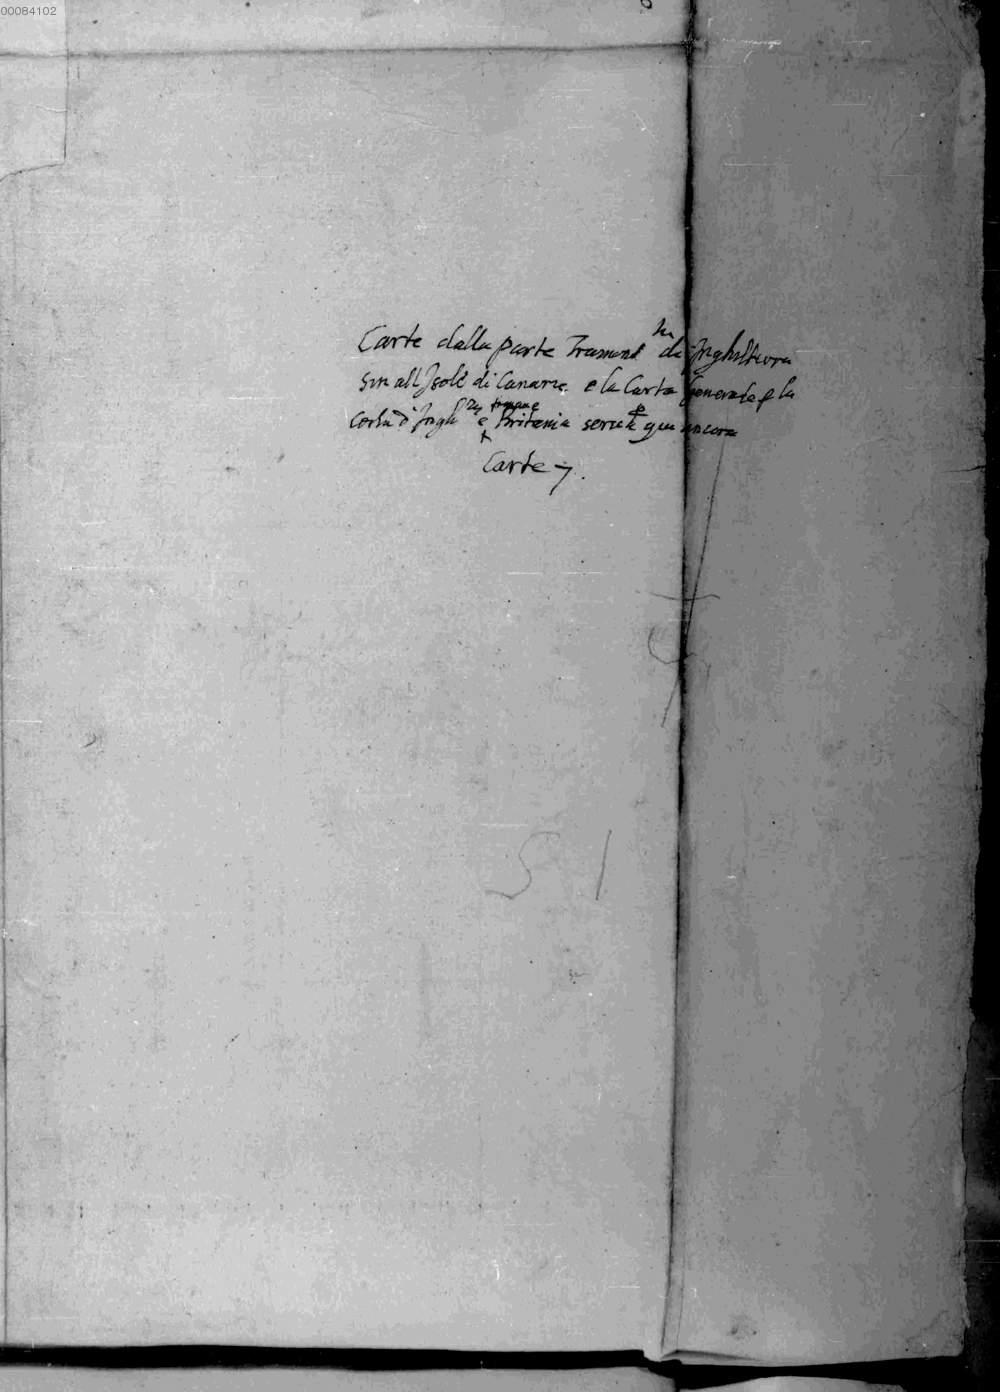 00084102
Carte dalla parte Tramont^na di Inghilterra
sin all Isole di Canarie e la Carta Generale p la
Costa d'Ingh^ra e Britania serue p qui ancora
françae
Carte 7.
51